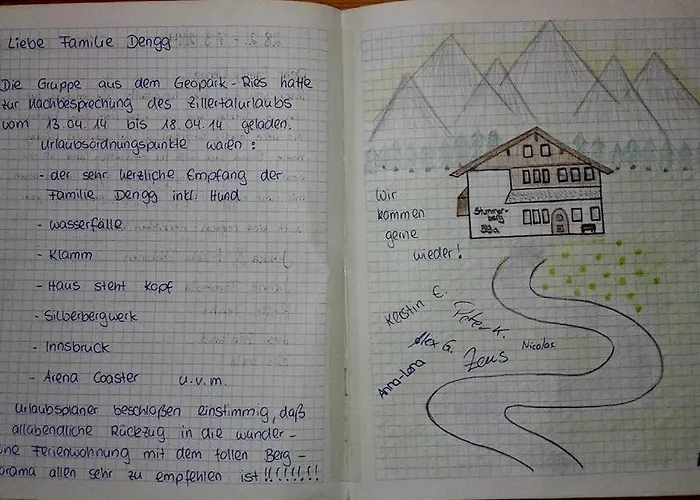 Liebe Familie Dengg
Die Gruppe aus dem Geopark-Ries hatte
zur Nachbesprechung des Zillertalurlaubs
vom 13.04.14 bis 18.04.14 geladen.
Urlaubsordnungspunkte waren:
- der sehr herzliche Empfang der
Familie Dengg inkl. Hund
- Wasserfälle
- Klamm
- Haus steht Kopf
- Silberbergwerk
- Innsbruck
- Arena Coaster u.v.m.
Urlaubsplaner beschloßen einstimmig, daß
allabendliche Rückzug in die wunder-
ne Ferienwohnung mit dem tollen Berg-
orama allen sehr zu empfehlen ist!!!!!!!!
Stummer-
berg
89a
Wir
kommen
gerne
wieder!
Kerstin E.
Peter K.
Alex G.
Zeus
Nicolas
Anna-Lena